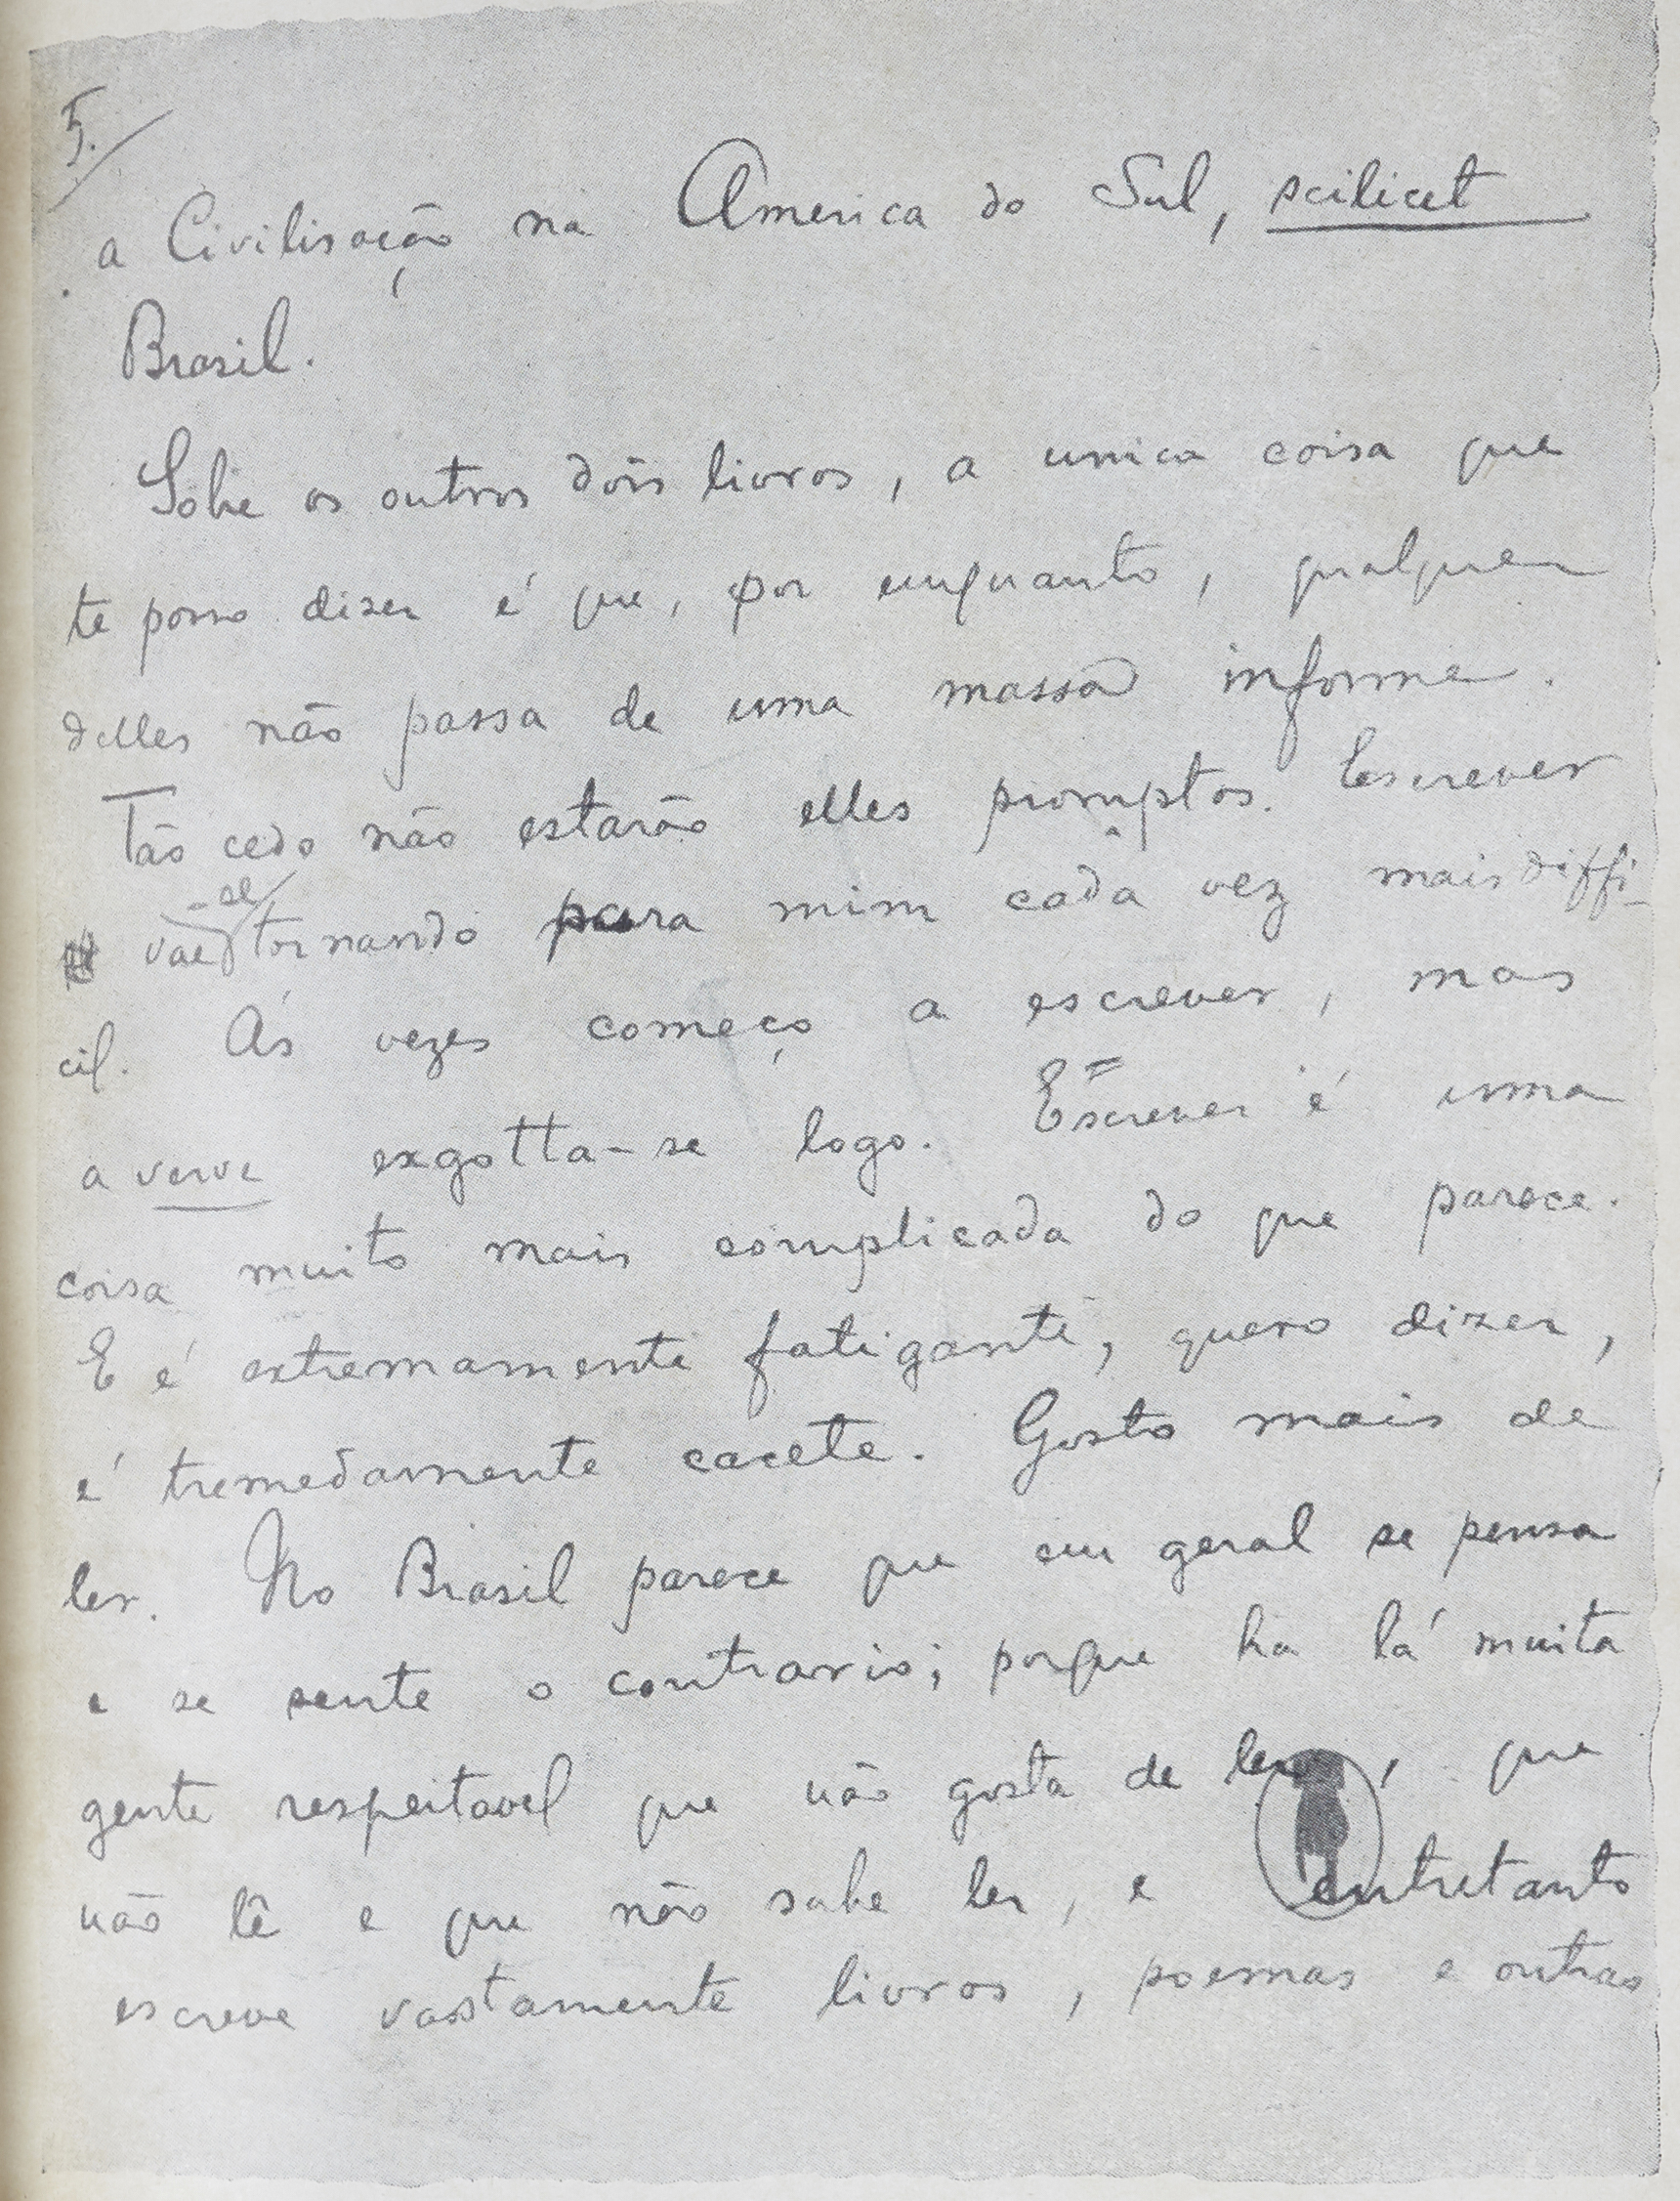 5.
a Civilisação na America do Sul, scilicet
Brasil.
Sobre os outros dois livros, a unica coisa que
te posso dizer é que, por emquanto, qualquer
delles não passa de uma massa informe.
Tão cedo não estarão elles promptos. Escrever
vae-se tornando para mim cada vez mais diffi-
cil. Ás vezes começo a escrever, mas
a verve exgotta-se logo. Escrever é uma
coisa muito mais complicada do que parece.
E é extremamente fatigante, quero dizer,
é tremedamente cacete. Gosto mais de
ler. No Brasil parece que em geral se pensa
e se sente o contrario; porque ha lá muita
gente respeitavel que não gosta de ler, que
não lê e que não sabe ler, e entretanto
escreve vastamente livros, poemas e outras